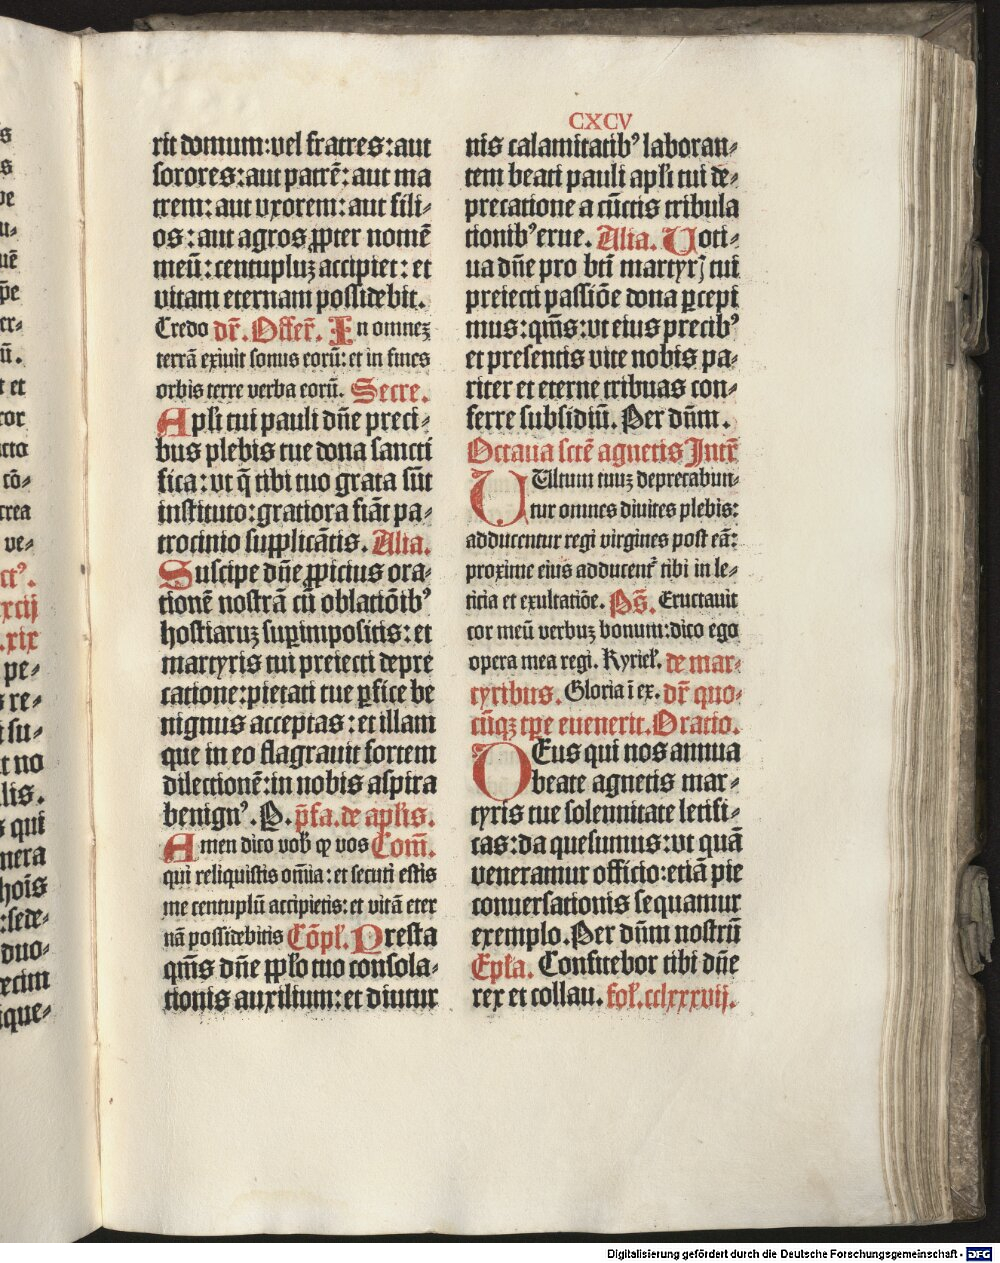 CXCV
rit domum:vel fratres:aut
sorores:aut patrē:aut ma
trem:aut vxorem:aut fili⸗
os:aut agros ꝓpter nomē
meū:centupluꝫ accipiet:et
vitam eternam possidebit.
Credo dr̄. Offer̄. In omneꝫ
terrā exiuit sonus eorū:et in fines
orbis terre verba eorū. Secre.
Apłi tui pauli dñe preci⸗
bus plebis tue dona sancti
fica:vt q̄ tibi tuo grata sūt
instituto:gratiora fiāt pa⸗
trocinio supplicātis. Alia.
Suscipe dñe ꝓpicius ora⸗
tionē nostrā cū oblatiōibꝰ
hostiaruꝫ suꝑimpositis:et
martyris tui preiecti depre
catione:pietati tue ꝑfice be
nignus acceptas:et illam
que in eo flagrauit fortem
dilectionē:in nobis aspira
benignꝰ. P. p̄fa.de apłis.
Amen dico vob̄ ꝙ vos Com̄.
qui reliquistis om̄ia:et secuti estis
me centuplū accipietis:et vitā eter
nā possidebitis Cōpł. Presta
qm̄s dñe ppło tuo consola⸗
tionis auxilium:et diutur
nis calamitatibꝰ laboran⸗
tem beati pauli apłi tui de⸗
precatione a cūctis tribula
tionibꝰ erue. Alia. Uoti⸗
ua dñe pro bti martyrꝭ tui
preiecti passiōe dona ꝑcepi
mus:qm̄s:vt eius precibꝰ
et presentis vite nobis pa⸗
riter et eterne tribuas con⸗
ferre subsidiū. Per dūm.
Octaua sctē agnetis Intr̄
UUltum tuuꝫ deprecabun⸗
tur omnes diuites plebis:
adducentur regi virgines post eā:
proxime eius adducent᷑ tibi in le⸗
ticia et exultatiōe. Ps̄. Eructauit
cor meū verbuꝫ bonum:dico ego
opera mea regi. Kyrieł. de mar⸗
tyribus. Gloria ī ex. dr̄ quo⸗
cūqꝫ tꝑe euenerit. Oratio.
DEus qui nos annua
beate agnetis mar⸗
tyris tue solennitate letifi⸗
cas:da quesumus:vt quā
veneramur officio:etiā pie
conuersationis sequamur
exemplo. Per dūm nostrū
Epła. Confitebor tibi dñe
rex et collau. foł. cclxxxvij.
Digitalisierung gefördert durch die Deutsche Forschungsgemeinschaft - DFG